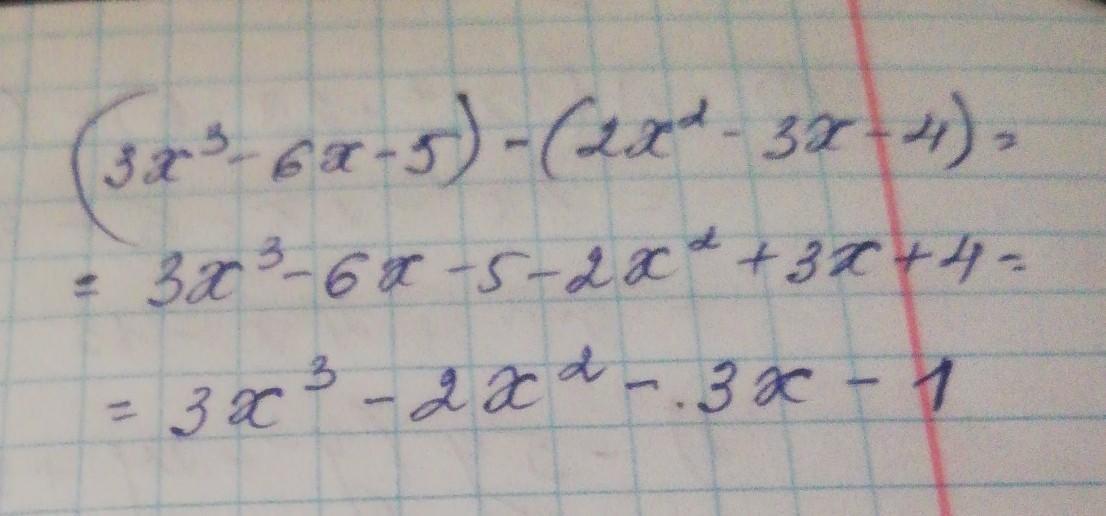 (3x³ - 6x - 5) - (2x² - 3x - 4) =
= 3x³ - 6x - 5 - 2x² + 3x + 4 =
= 3x³ - 2x² - 3x - 1